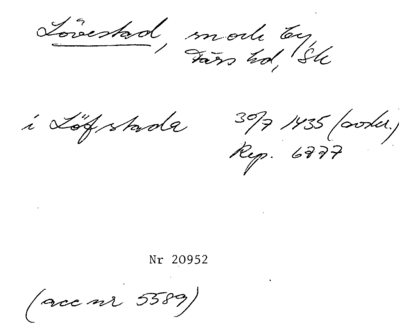 Lövestad, sn och by,
Färs hd, Sk
i Löfstada 30/7 1435 (avskr.)
Rep. 6777
Nr 20952
(acc nr 5589)